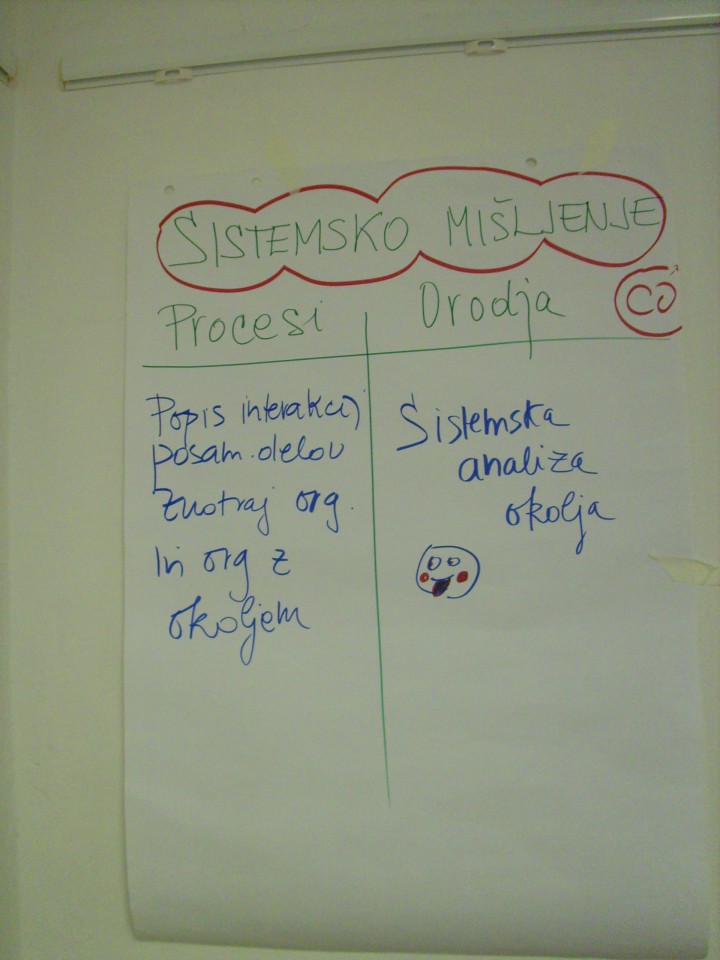 SISTEMSKO MIŠLJENJE
Procesi
Orodja
CO
Popis interakcij
posam. delov
znotraj org.
in org z
okoljem
Sistemska
analiza
okolja